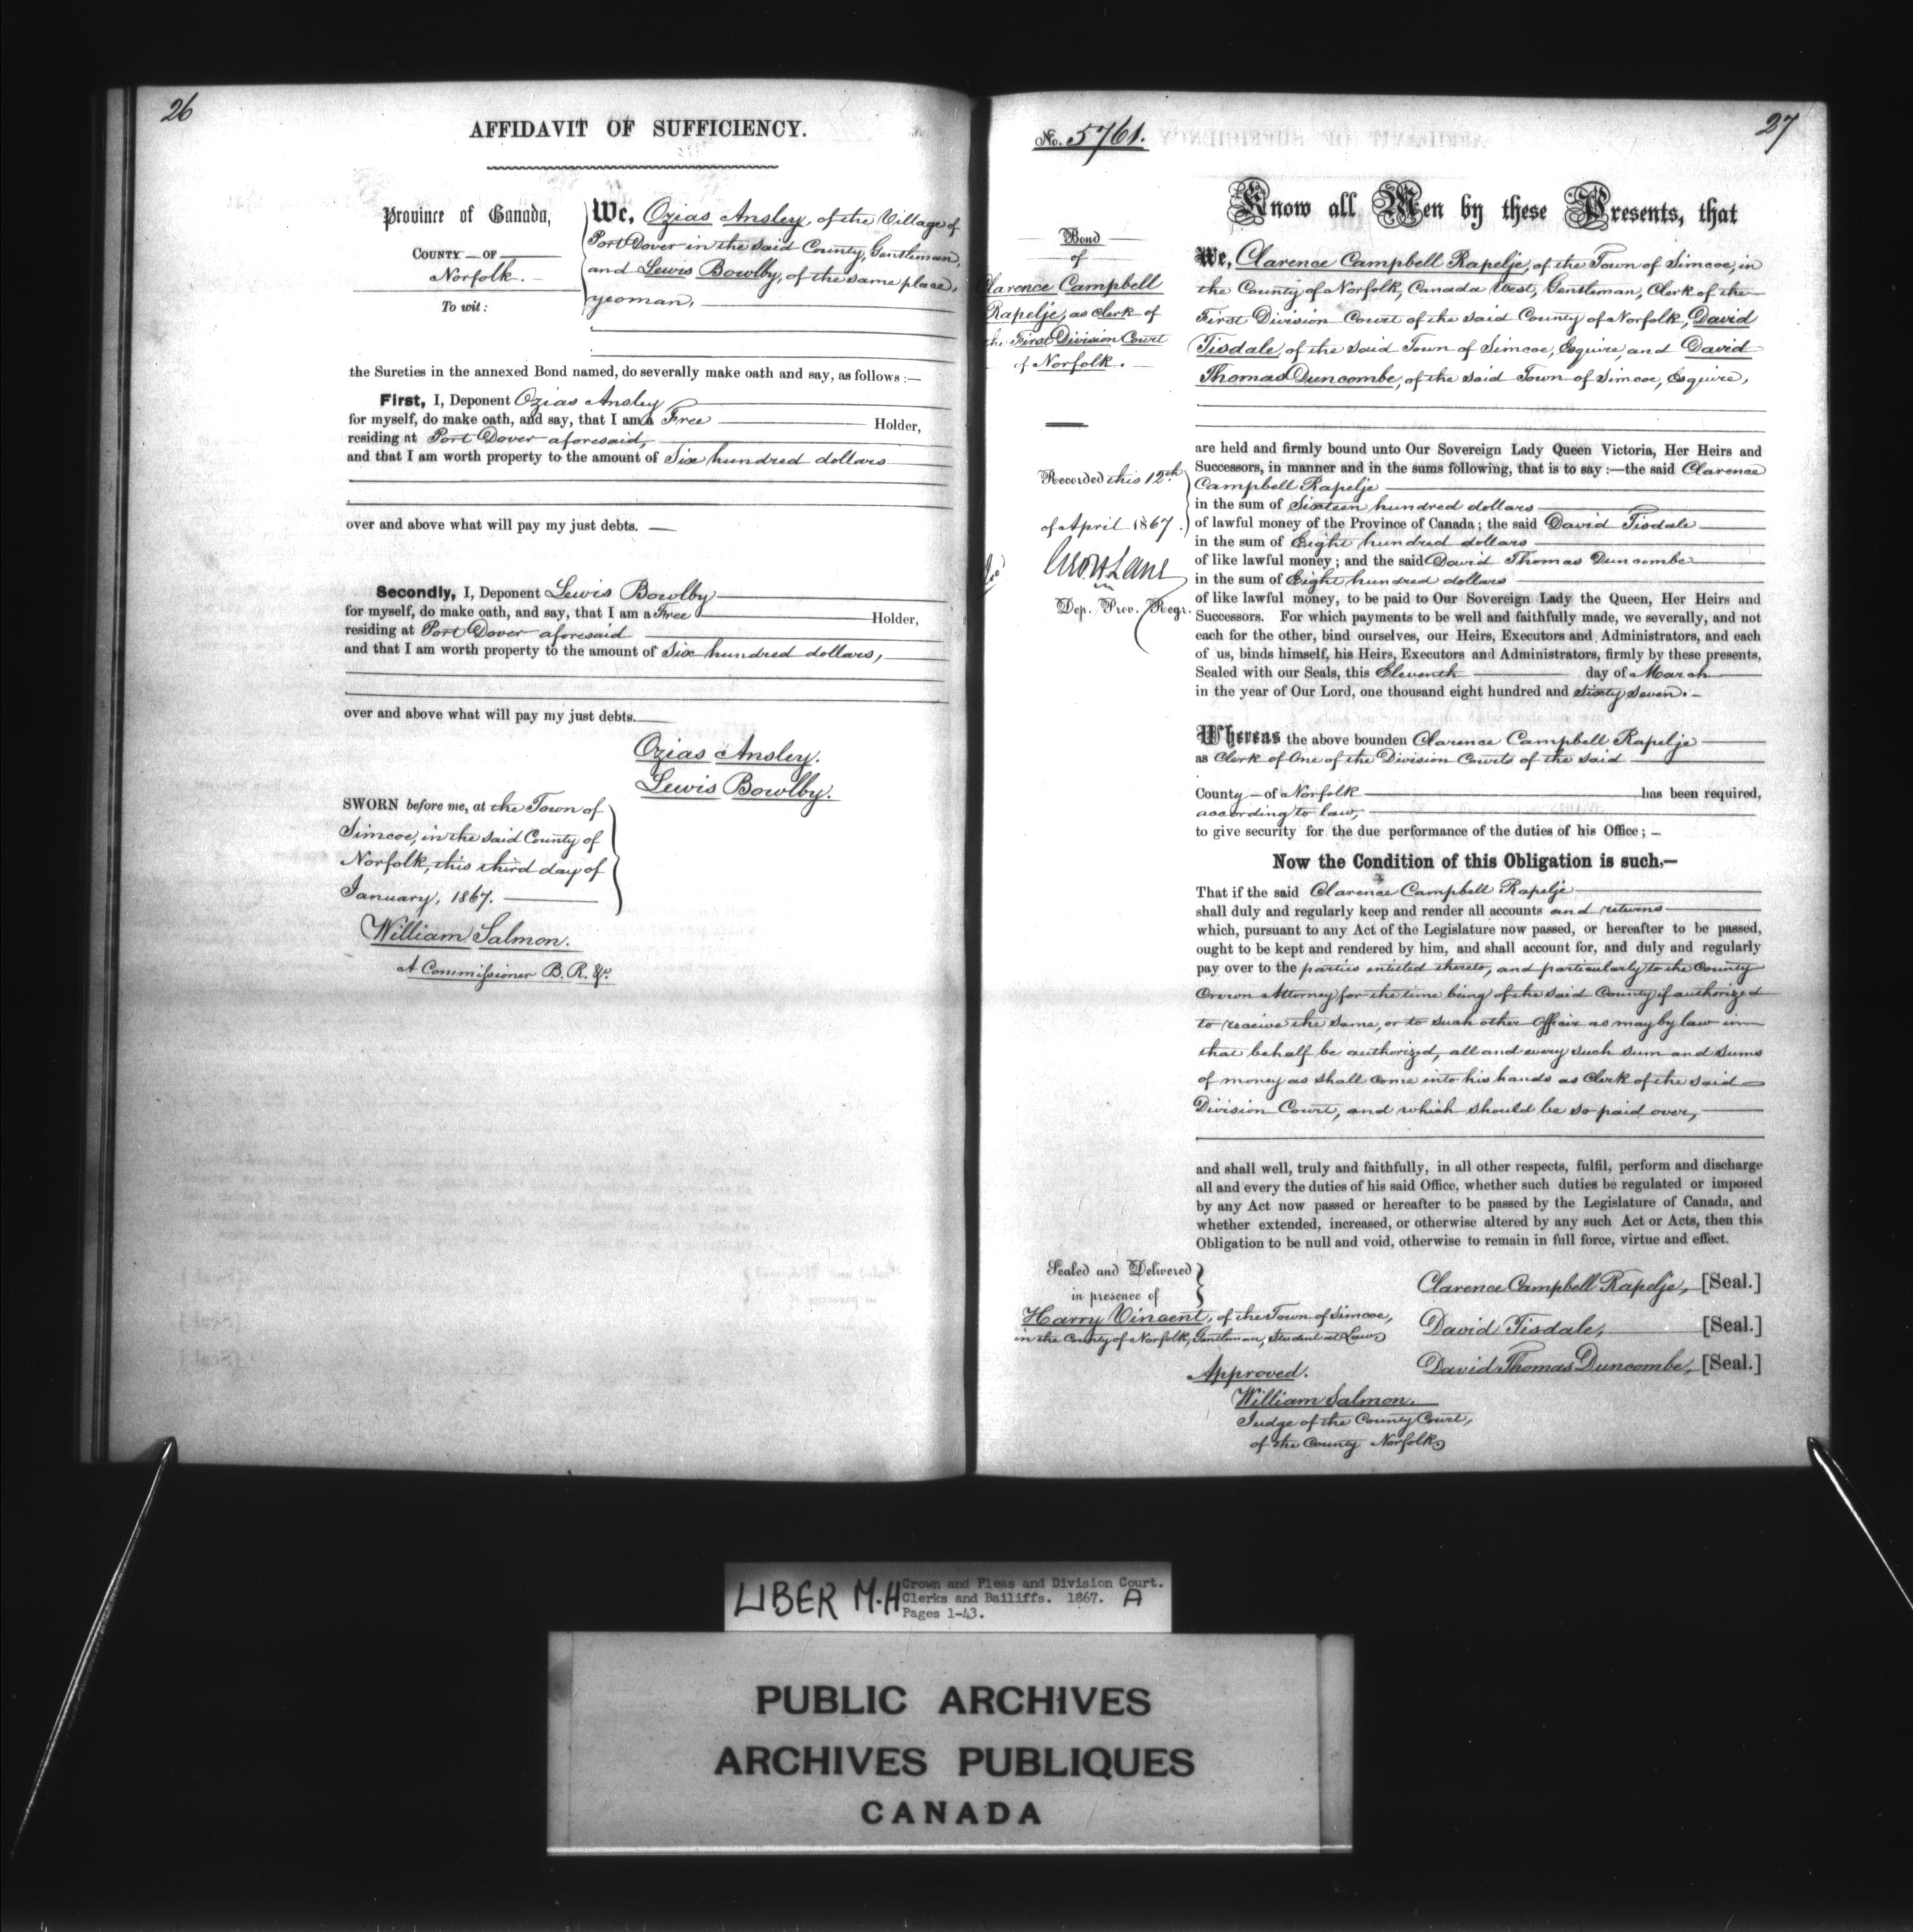 26
AFFIDAVIT OF SUFFICIENCY.
Province of Canada,
COUNTY — OF
Norfolk.
To wit:
We, Ozias Ansley, of the Village of
Port Dover in the said County, Gentleman,
and Lewis Bowlby, of the same place,
yeoman,
the Sureties in the annexed Bond named, do severally make oath and say, as follows :—
First, I, Deponent Ozias Ansley
for myself, do make oath, and say, that I am a Free Holder,
residing at Port Dover aforesaid,
and that I am worth property to the amount of Six hundred dollars
over and above what will pay my just debts. —
Secondly, I, Deponent Lewis Bowlby
for myself, do make oath, and say, that I am a Free Holder,
residing at Port Dover aforesaid
and that I am worth property to the amount of Six hundred dollars,
over and above what will pay my just debts.
Ozias Ansley.
Lewis Bowlby.
SWORN before me, at the Town of
Simcoe, in the said County of
Norfolk, this third day of
January, 1867.
William Salmon.
A Commissioner B. R. &c.
27
No. 5761.
Bond
of
Clarence Campbell
Rapelje, as Clerk of
the First Division Court
of Norfolk.
Recorded this 12th
of April 1867.
Dep. Prov. Regr.
Know all Men by these Presents, that
We, Clarence Campbell Rapelje, of the Town of Simcoe, in
the County of Norfolk, Canada West, Gentleman, Clerk of the
First Division Court of the said County of Norfolk, David
Tisdale, of the said Town of Simcoe, Esquire, and David
Thomas Duncombe, of the said Town of Simcoe, Esquire,
are held and firmly bound unto Our Sovereign Lady Queen Victoria, Her Heirs and
Successors, in manner and in the sums following, that is to say :—the said Clarence
Campbell Rapelje
in the sum of Sixteen hundred dollars
of lawful money of the Province of Canada ; the said David Tisdale
in the sum of Eight hundred dollars
of like lawful money ; and the said David Thomas Duncombe
in the sum of Eight hundred dollars
of like lawful money, to be paid to Our Sovereign Lady the Queen, Her Heirs and
Successors. For which payments to be well and faithfully made, we severally, and not
each for the other, bind ourselves, our Heirs, Executors and Administrators, and each
of us, binds himself, his Heirs, Executors and Administrators, firmly by these presents,
Sealed with our Seals, this Eleventh day of March
in the year of Our Lord, one thousand eight hundred and sixty seven. —
Whereas the above bounden Clarence Campbell Rapelje
as Clerk of One of the Division Courts of the said
County — of Norfolk has been required,
according to law,
to give security for the due performance of the duties of his Office ; —
Now the Condition of this Obligation is such,—
That if the said Clarence Campbell Rapelje
shall duly and regularly keep and render all accounts and returns
which, pursuant to any Act of the Legislature now passed, or hereafter to be passed,
ought to be kept and rendered by him, and shall account for, and duly and regularly
pay over to the parties entitled thereto, and particularly to the County
Crown Attorney for the time being of the said County if authorized
to receive the same, or to such other Officer as may by law in
that behalf be authorized, all and every such sum and sums
of money as shall come into his hands as Clerk of the said
Division Court, and which should be so paid over,
and shall well, truly and faithfully, in all other respects, fulfil, perform and discharge
all and every the duties of his said Office, whether such duties be regulated or imposed
by any Act now passed or hereafter to be passed by the Legislature of Canada, and
whether extended, increased, or otherwise altered by any such Act or Acts, then this
Obligation to be null and void, otherwise to remain in full force, virtue and effect.
Sealed and Delivered
in presence of
Harry Vincent, of the Town of Simcoe,
in the County of Norfolk, Gentleman, Student at Law
Clarence Campbell Rapelje, [Seal.]
David Tisdale, [Seal.]
David Thomas Duncombe, [Seal.]
Approved.
William Salmon.
Judge of the County Court,
of the County Norfolk
LIBER M.H
Crown and Pleas and Division Court.
Clerks and Bailiffs. 1867. A
Pages 1-43.
PUBLIC ARCHIVES
ARCHIVES PUBLIQUES
CANADA